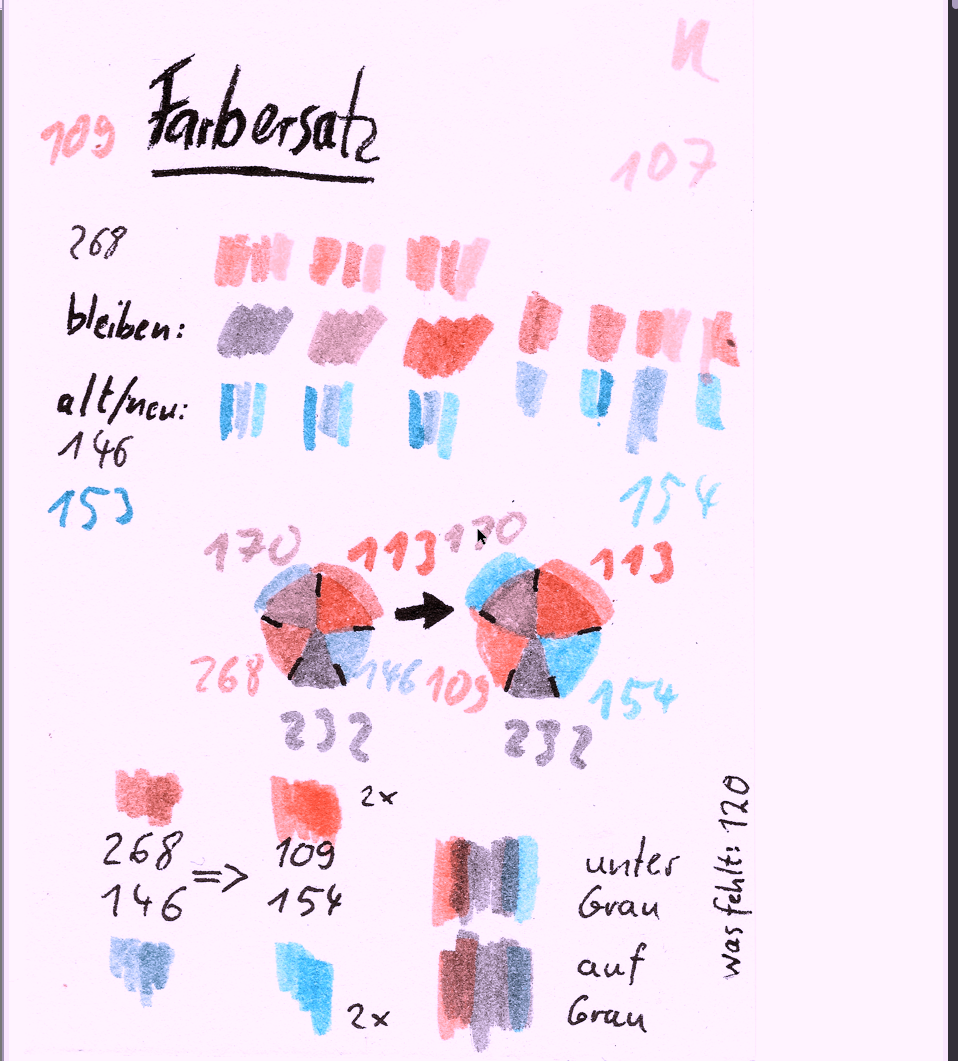 109 Farbersatz
107
268
bleiben:
alt/neu:
146
153
154
170 113 170 113
268 146 109 154
232 232
2x
268 => 109
146 154
2x
unter
Grau
auf
Grau
Was fehlt: 120